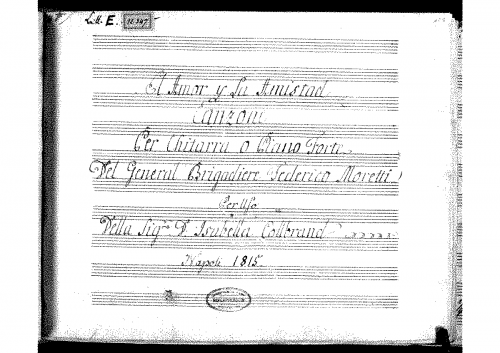 Litt. E.
El Amor y La Amistad
Canzone
Per Chitarra o Piano Forte
Del General Brigadiere Federico Moretti
Per Uso
Della Sigrª Dª Isabella Colbrand
Napoli 1815